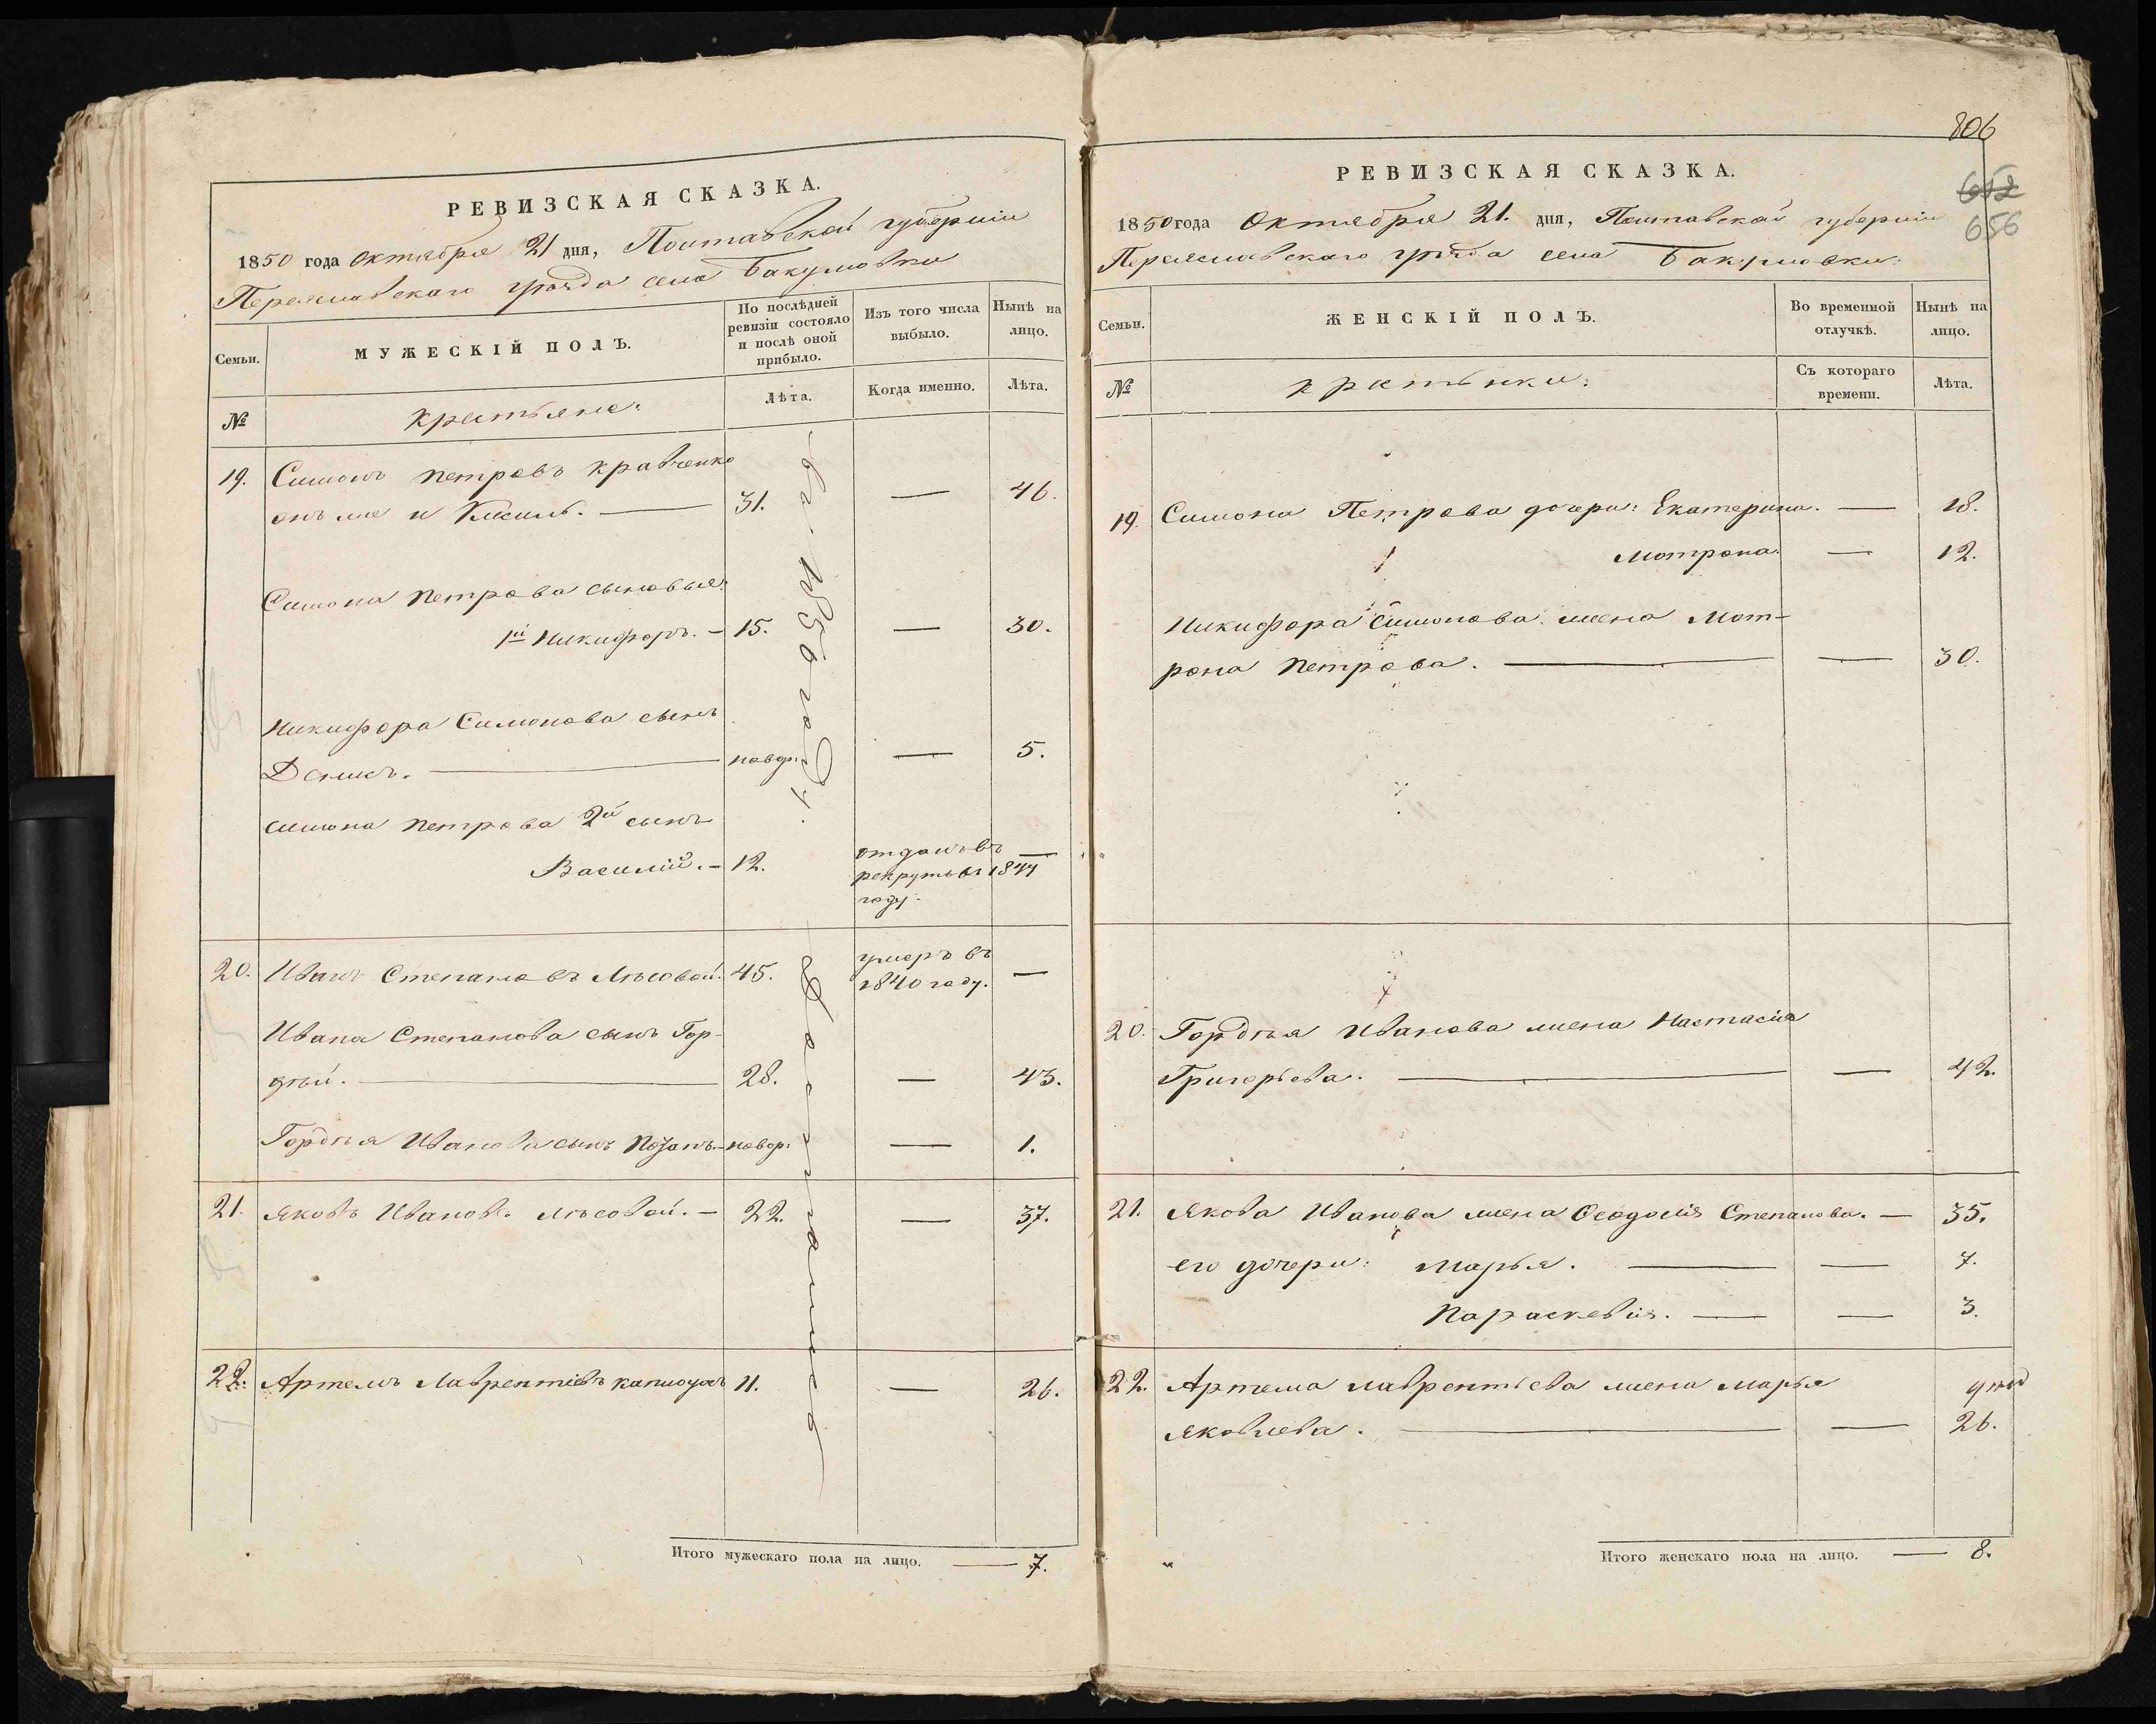 РЕВИЗСКАЯ СКАЗКА.
1850 года Октября 21 дня, Полтавской губерніи
Переяславскаго уѣзда села Бакумовки
Семьи.
МУЖЕСКІЙ ПОЛЪ.
По послѣдней ревизіи состояло и послѣ оной прибыло.
Изъ того числа выбыло.
Нынѣ на лицо.
№
крестьяне:
Лѣта.
Когда именно.
Лѣта.
19. Симонъ Петровъ Кравченко
онъ же и Кисиль. — 31. — 46.
Симона Петрова сыновья:
1й Никифоръ. — 15. — 30.
Никифора Симонова сынъ
Денисъ. — новор. — 5.
Симона Петрова 2й сынъ
Василій. — 12. отданъ въ —
рекруты въ 1844
году.
20. Иванъ Степановъ Лѣсовой. 45. умеръ въ
1840 году. —
Ивана Степанова сынъ Гор-
дѣй. — 28. — 43.
Гордѣя Иванова сынъ — новор. — 1.
21. Яковъ Ивановъ Лѣсовой. — 22. — 37.
22. Артемъ Лаврентіевъ 11. — 26.
въ 1850 году.
Итого мужескаго пола на лицо. — 7.
806
652
656
РЕВИЗСКАЯ СКАЗКА.
1850 года Октября 21. дня, Полтавской губерніи
Переяславскаго уѣзда села Бакумовки.
Семьи.
ЖЕНСКІЙ ПОЛЪ.
Во временной отлучкѣ.
Нынѣ на лицо.
№
крестьянки:
Съ котораго времени.
Лѣта.
19. Симона Петрова дочери: Екатерина. — 18.
Мотрона. — 12.
Никифора Симонова жена Мот-
рона Петрова. — — 30.
20. Гордѣя Иванова жена Настасія
Григорьева. — — 42.
21. Якова Иванова жена Ѳеодосія Степанова. — 35.
его дочери: Марья. — — 7.
Параскевія. — — 3.
22. Артема Лаврентьева жена Марья
Яковлева. — — 26.
Итого женскаго пола на лицо. — 8.